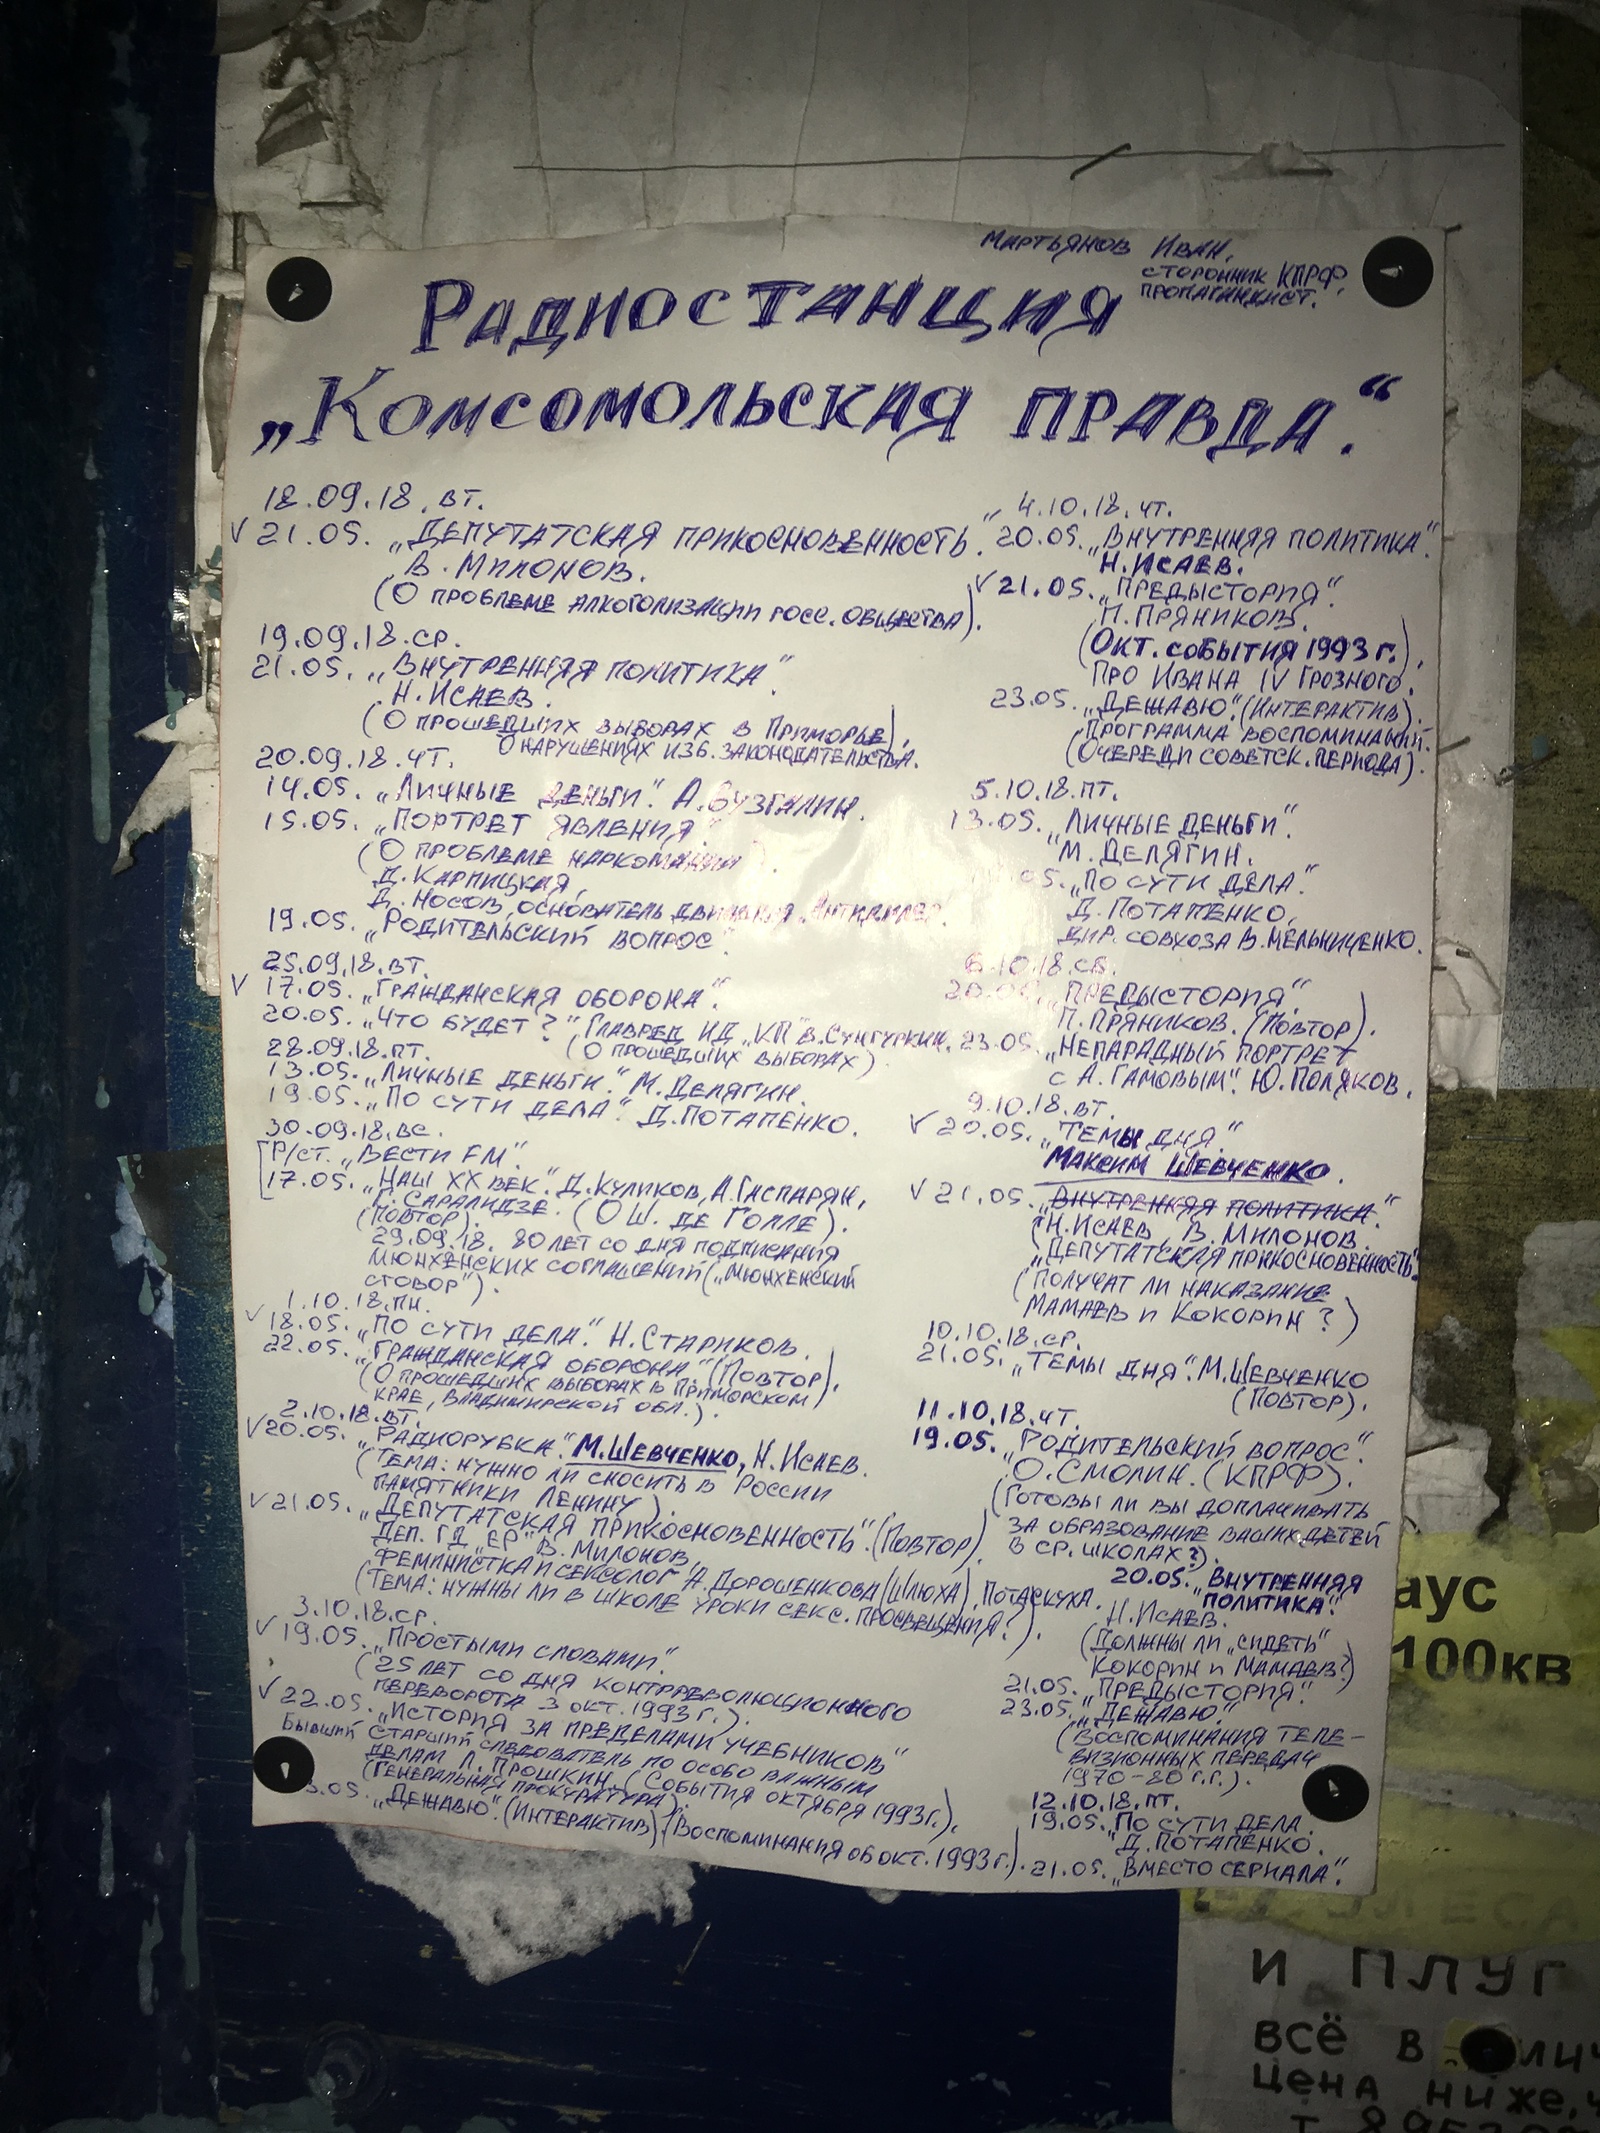 Мартьянов Иван,
сторонник КПРФ,
пропагандист.
Радиостанция
„Комсомольская правда."
18.09.18. вт.
V 21.05. „Депутатская прикосновенность.
В. Милонов.
(О проблеме алкоголизации росс. общества).
19.09.18. ср.
21.05. „Внутренняя политика".
Н. Исаев.
(О прошедших выборах в Приморье),
О нарушениях изб. законодательства.
20.09.18. чт.
14.05. „Личные деньги". А. Бузгалин.
15.05. „Портрет явления".
(О проблеме наркомании).
Д. Карпицкая,
Д. Носов, основатель движения „Антидилер".
19.05. „Родительский вопрос".
25.09.18. вт.
V 17.05. „Гражданская оборона".
20.05. „Что будет?" Главред ИД „КП" В. Сунгоркин.
(О прошедших выборах)
28.09.18. пт.
13.05. „Личные деньги". М. Делягин.
19.05. „По сути дела". Д. Потапенко.
30.09.18. вс.
Р/ст. „Вести FM".
17.05. „Наш XX век". Д. Куликов, А. Гаспарян,
Г. Саралидзе.
(Повтор). (О Ш. де Голле).
29.09.18. 80 лет со дня подписания
Мюнхенских соглашений („Мюнхенский
сговор").
1.10.18. пн.
V 18.05. „По сути дела". Н. Стариков.
22.05. „Гражданская оборона" (Повтор).
(О прошедших выборах в Приморском
крае, Владимирской обл.).
2.10.18. вт.
V 20.05. „Радиорубка". М. Шевченко, Н. Исаев.
(Тема: нужно ли сносить в России
памятники Ленину).
V 21.05. „Депутатская прикосновенность". (Повтор).
Деп. ГД „ЕР" В. Милонов,
феминистка и сексолог А. Дорошенкова (шлюха). Потаскуха.
(Тема: нужны ли в школе уроки секс. просвещения?).
3.10.18. ср.
V 19.05. „Простыми словами."
(25 лет со дня контрреволюционного
переворота 3 окт. 1993 г.).
V 22.05. „История за пределами учебников"
Бывший старший следователь по особо важным
делам Л. Прошкин. (События октября 1993 г.).
(Генеральная прокуратура).
3.05. „Дежавю". (Интерактив) (Воспоминания об окт. 1993 г.).
„ 4.10.18. чт.
20.05. „Внутренняя политика".
Н. Исаев.
V 21.05. „Предыстория".
П. Пряников.
(Окт. события 1993 г.),
Про Ивана IV Грозного.
23.05. „Дежавю". (Интерактив).
Программа воспоминаний.
(Очереди советск. периода).
5.10.18. пт.
13.05. „Личные деньги".
М. Делягин.
05. „По сути дела".
Д. Потапенко,
дир. совхоза В. Мельниченко.
6.10.18. сб.
20.05. „Предыстория".
П. Пряников. (Повтор).
23.05. „Непарадный портрет
с А. Гамовым". Ю. Поляков.
9.10.18. вт.
V 20.05. „Темы дня".
Максим Шевченко.
V 21.05. „Внутренняя политика."
(Н. Исаев, В. Милонов.
„Депутатская прикосновенность".
(Получат ли наказание
Мамаев и Кокорин?)
10.10.18. ср.
21.05. „Темы дня". М. Шевченко
(Повтор).
11.10.18. чт.
19.05. „Родительский вопрос".
О. Смолин. (КПРФ).
(Готовы ли вы доплачивать
за образование ваших детей
в ср. школах?).
20.05. „Внутренняя
политика".
Н. Исаев.
(Должны ли „сидеть"
Кокорин и Мамаев?)
21.05. „Предыстория".
23.05. „Дежавю".
(Воспоминания теле-
визионных передач
1970-80 г.г.).
12.10.18. пт.
19.05. „По сути дела.
Д. Потапенко.
21.05. „Вместо сериала".
аус
100кв
И ПЛУГ
ВСЁ В
Цена ниже, ч